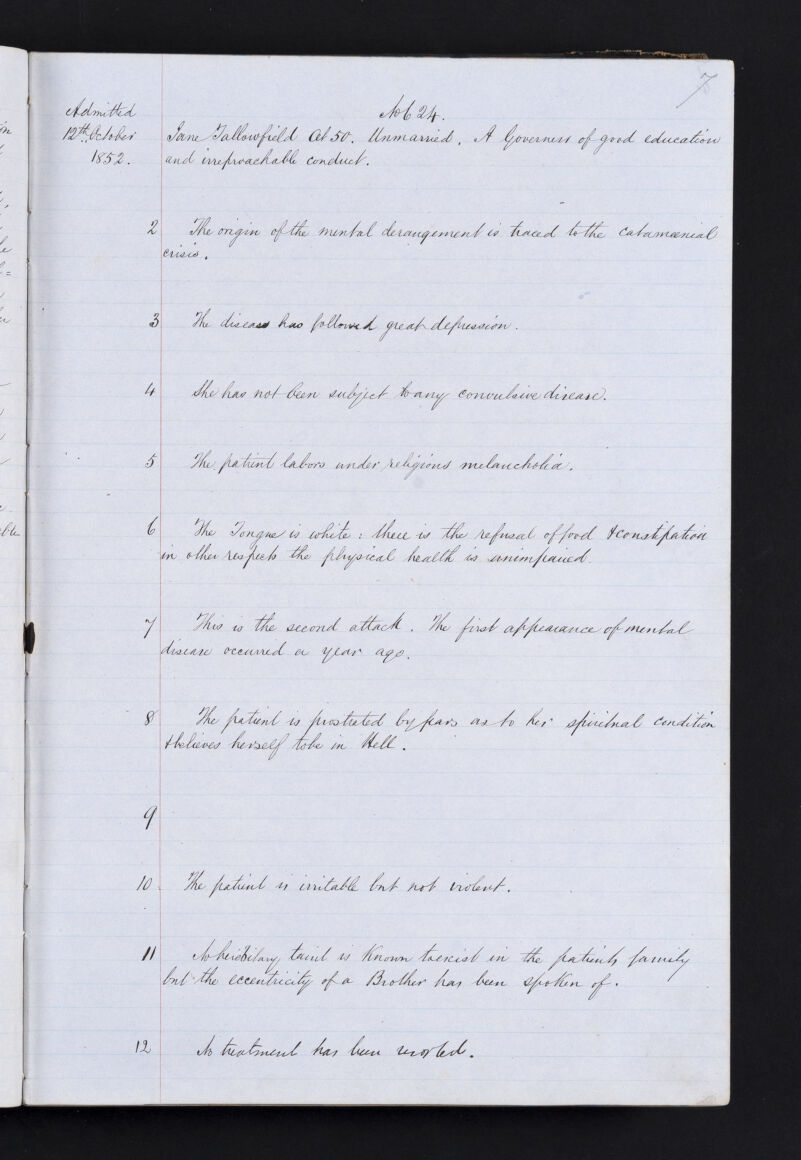 7
Admitted
12th October
1852.
No 624.
Jane Tallowfield Aet 50. Unmarried. A Governess of good education
and irreproachable conduct.
2 The origin of the mental derangement is traced to the catamænial
crisis.
3 The disease has followed great depression.
4 She has not been subject to any convulsive disease.
5 The patient labors under religious melancholia.
6 The Tongue is white: there is the refusal of food & constipation
in other respects the physical health is unimpaired.
7 This is the second attack. The first appearance of mental
disease occurred a year ago.
8 The patient is prostrated by fears as to her spiritual condition
& believes herself to be in Hell.
9
10 The patient is irritable but not violent.
11 No hereditary taint is known to exist in the patients family
but the eccentricity of a Brother has been spoken of.
12 No treatment has been